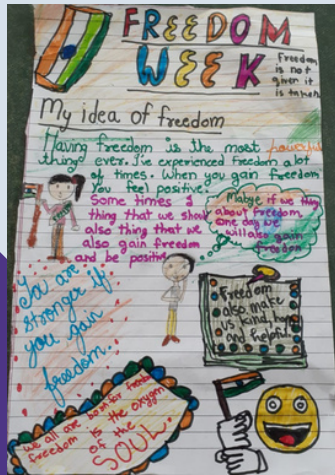 FREEDOM
WEEK
Freedom
is not
given it
is taken
My idea of freedom
Having freedom is the most powerful
thing ever. I've experienced freedom a lot
of times. When you gain freedom
You feel positive.
Some times I
thing that we shoul
also thing that we
also gain freedom
and be positive
Mabye if we thing
about freedom
one day we
will also gain
freedom
You are
stronger if
you gain
freedom.
Freedom
also make
us kind, hope
and helpful
we all are born for freedom
freedom is the oxygen
of the
SOUL.